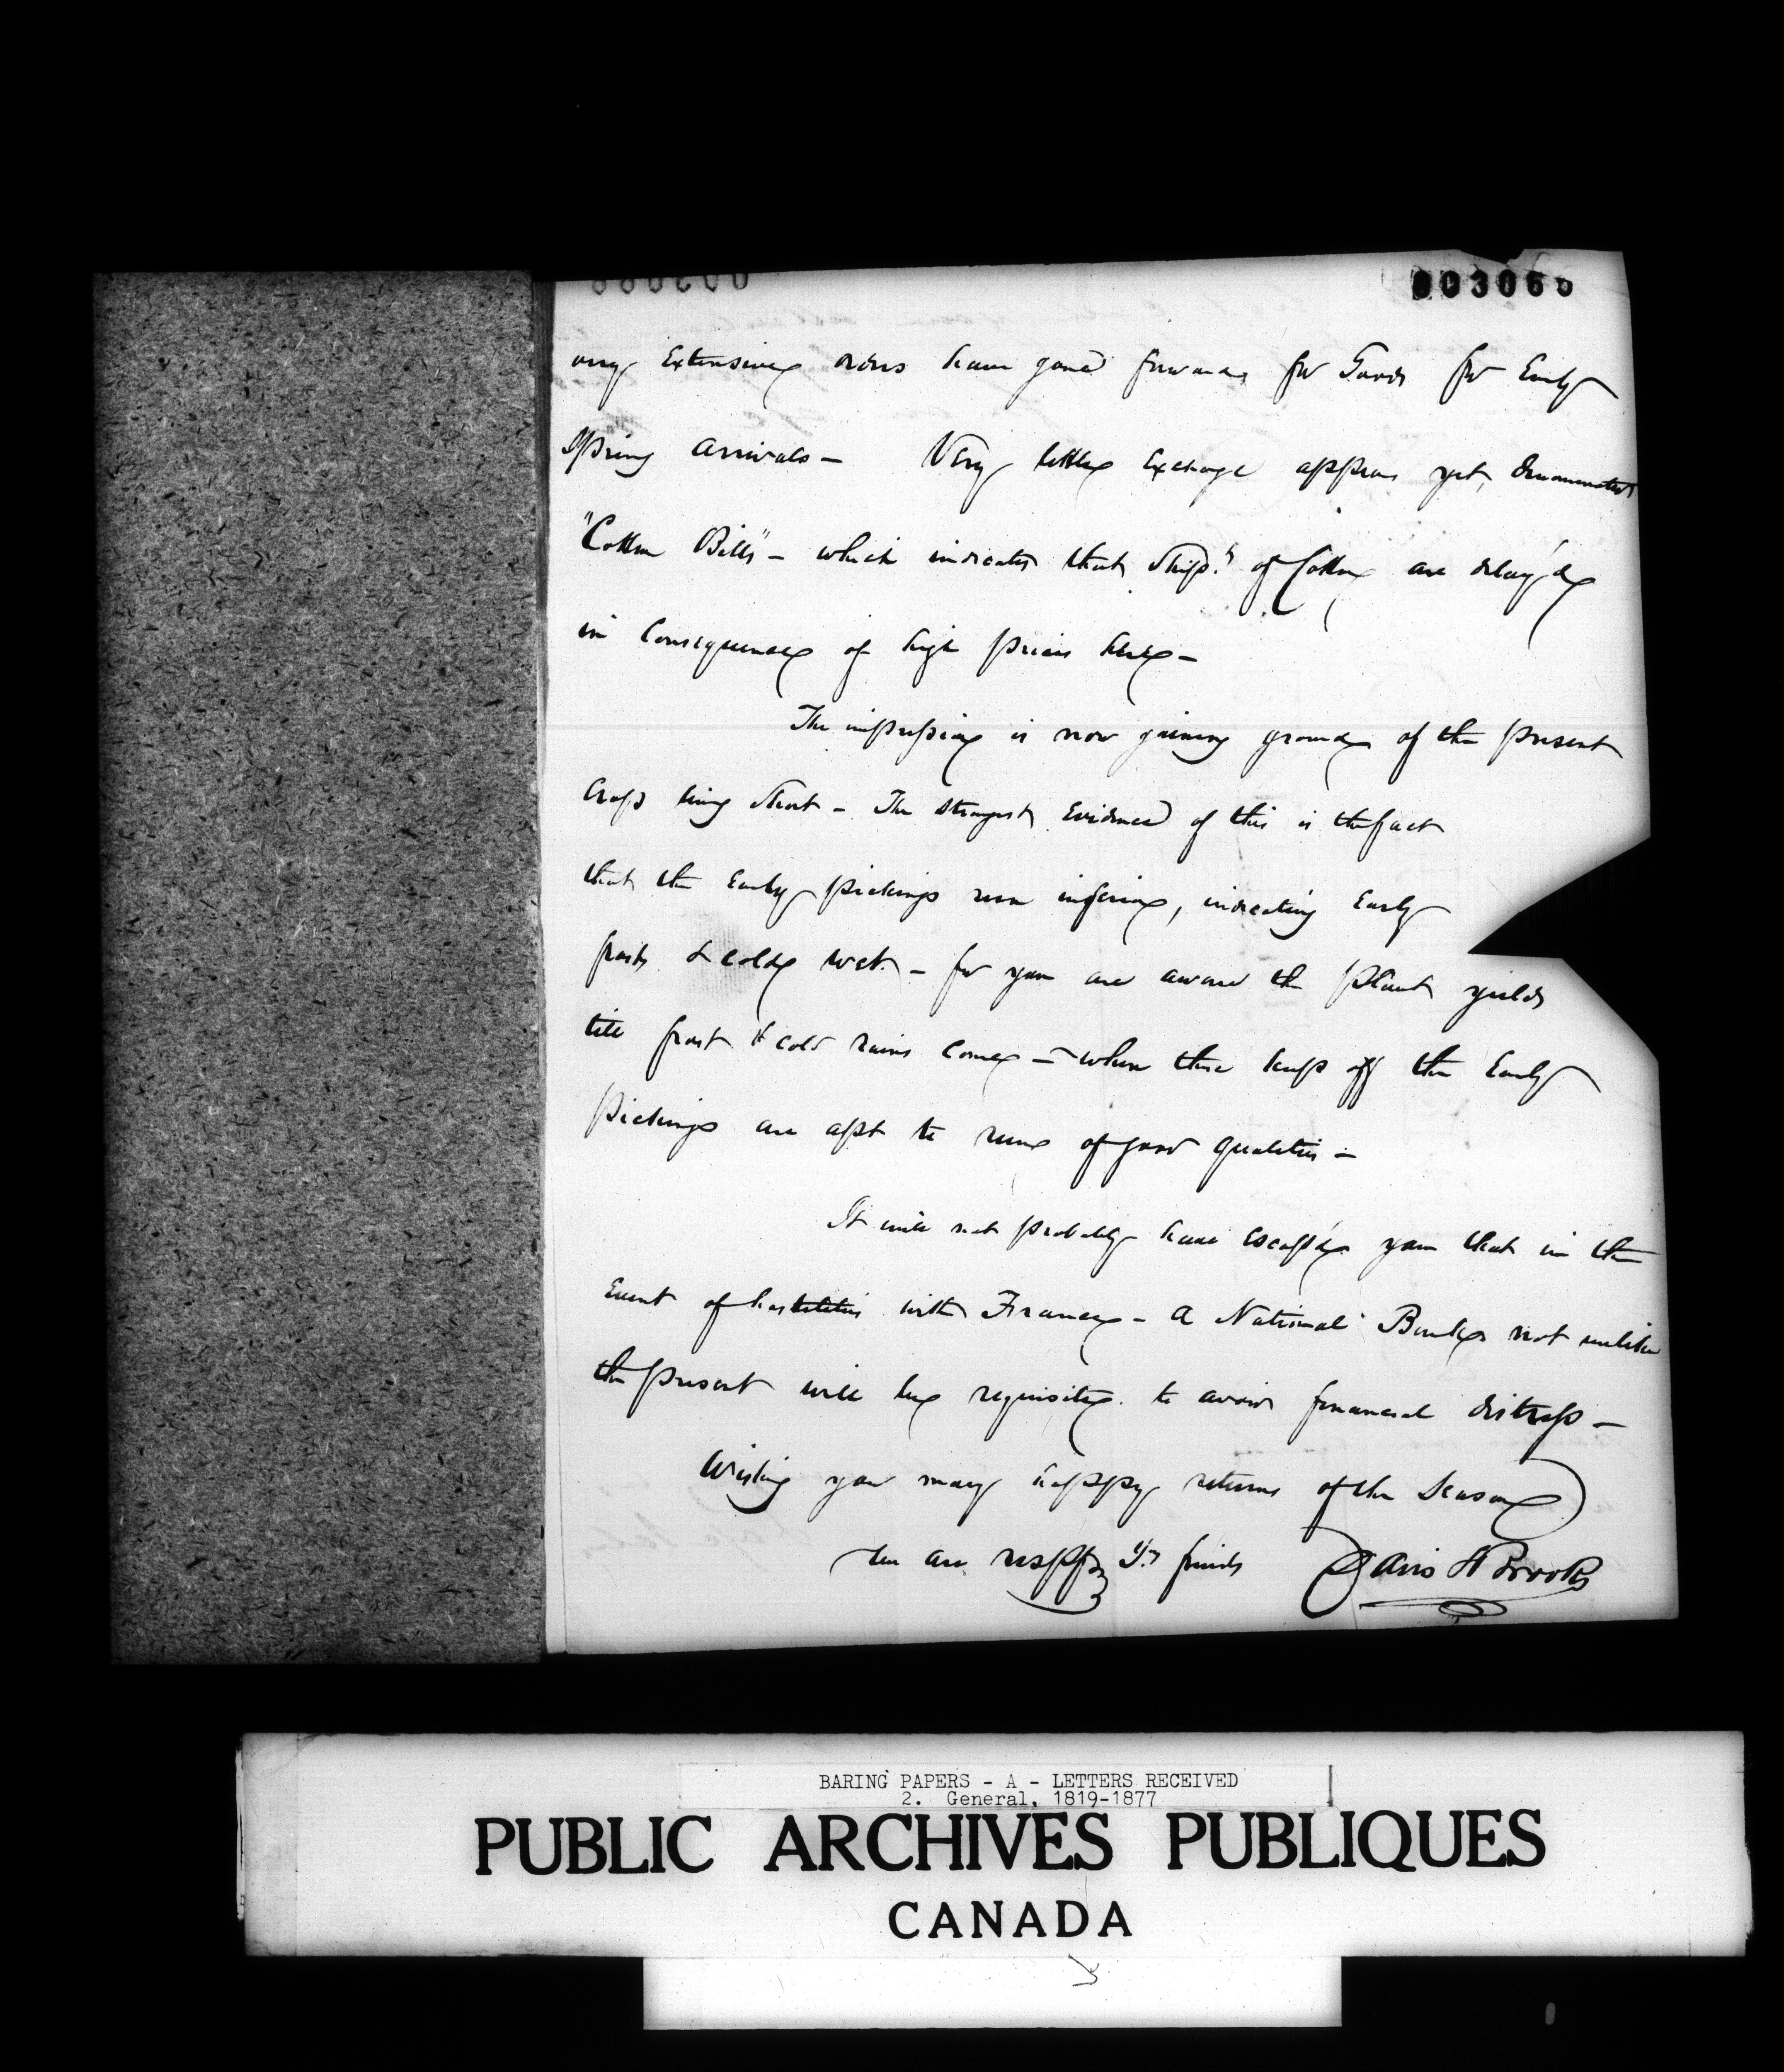 003060
very Extensive orders have gone forward for Goods for Early
Spring arrivals — Very little Exchange appears yet, denominated
"Cotton Bills" — which indicates that Ship.ts of Cotton are delay'd
in Consequence of high prices here —
The impression is now gaining ground of the present
Crop being Short — The strongest Evidence of this is the fact
that the Early pickings run inferior, indicating Early
frosts & cold wet. — for you are aware the Plant yields
till frost & cold rains come — when these keep off the Early
Pickings are apt to run of good qualities —
It will not probably have escap'd you that in the
Event of hostilities with France — a National Bank not unlike
the present will be requisite to avoid financial distress —
Wishing you many happy returns of the Season
We are respy Yr. friends Davis & Brooks
BARING PAPERS - A - LETTERS RECEIVED
2. General, 1819-1877
PUBLIC ARCHIVES PUBLIQUES
CANADA